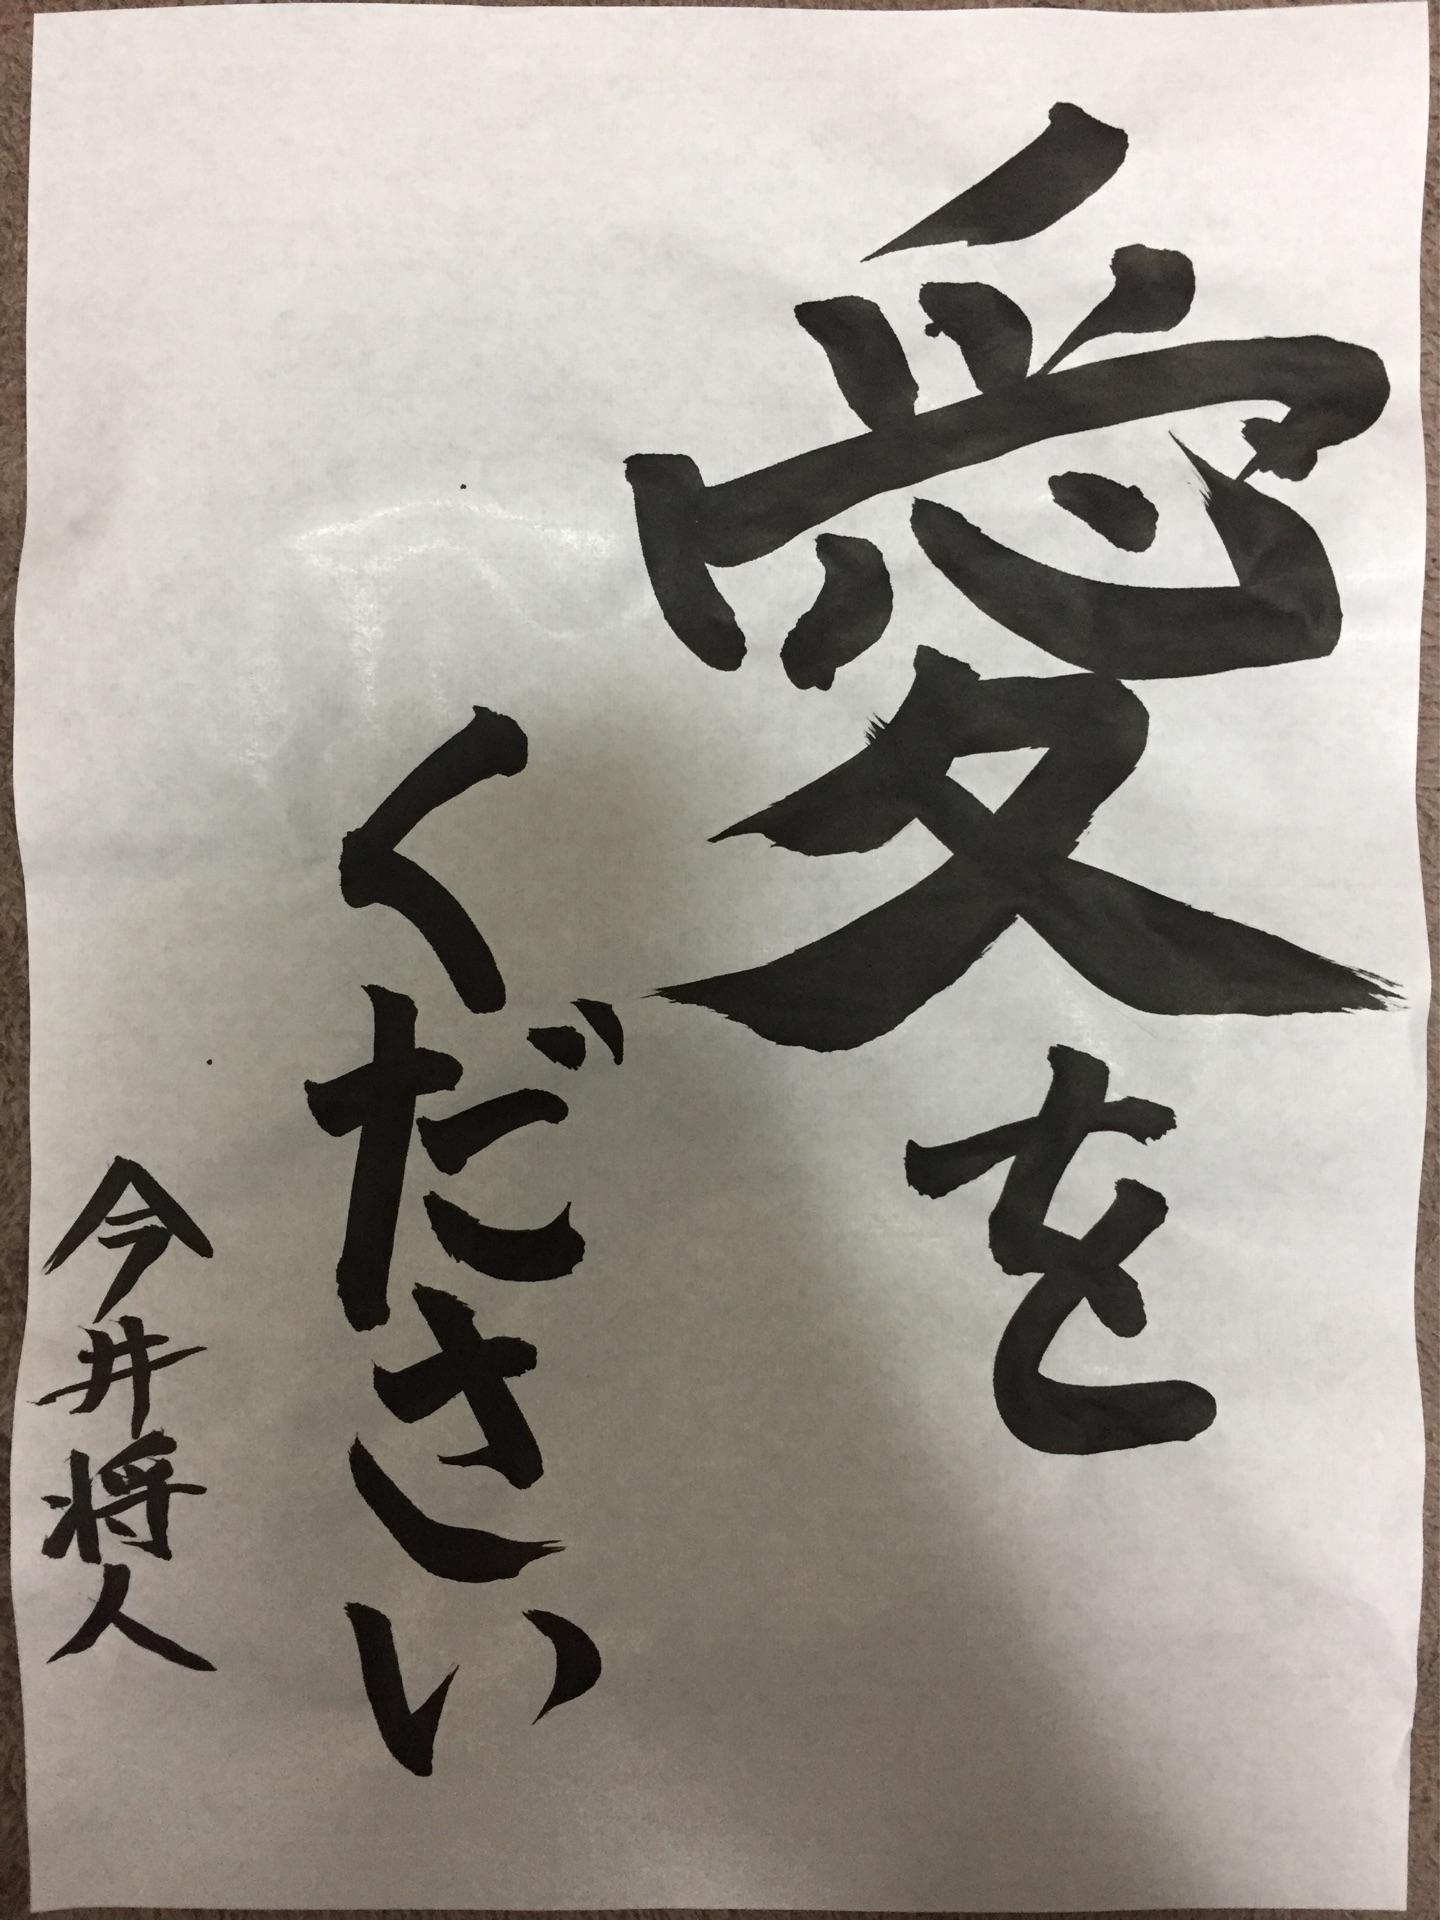 愛を
ください
今井将人